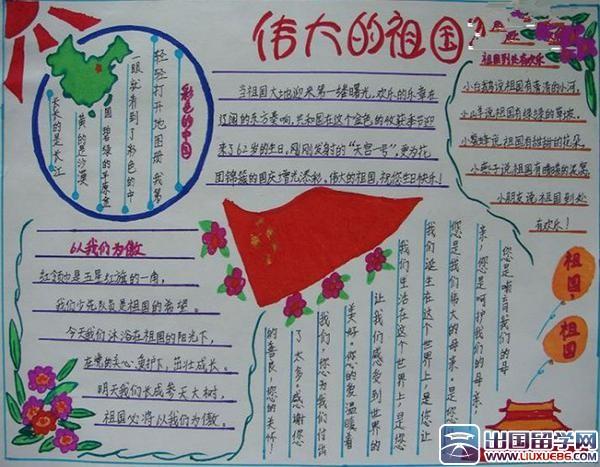 伟大的祖国
彩色的中国
轻轻打开地图册,我第
一眼就看到了彩色的中
国 碧绿的平原金
黄的是沙漠
长长的是长江
当祖国大地迎来第一缕曙光,欢乐的乐章在
辽阔的东方奏响,共和国在这个金色的收获季节迎
来了62岁的生日,刚刚发射的“天宫一号”,更为花
团锦簇的国庆增光添彩。伟大的祖国,祝您生日快乐!
祖国到处有欢乐
小白鹅说祖国有清清的小河,
小山羊说祖国有绿绿的草坡,
小蜜蜂说祖国有甜甜的花朵,
小燕子说祖国有暖暖的窝窝,
小朋友说祖国到处
有欢乐!
以我们为傲
红领巾是五星红旗的一角,
我们少先队员是祖国的希望。
今天我们沐浴在祖国的阳光下,
在党的关心、爱护下,茁壮成长。
明天我们长成参天大树,
祖国必将以我们为傲。
您是哺育我们的母
亲,您是呵护我们的母亲,
您是我们伟大的母亲,是您让
我们诞生在这个世界上,是您让
我们生活在这个世界上,是您
让我们感受到世界的
美好。您的爱温暖着
我们,您为我们付出
了太多。感谢您
的善良,您的关怀!
祖国,
祖国
出国留学网
WWW.LIUXUE86.COM